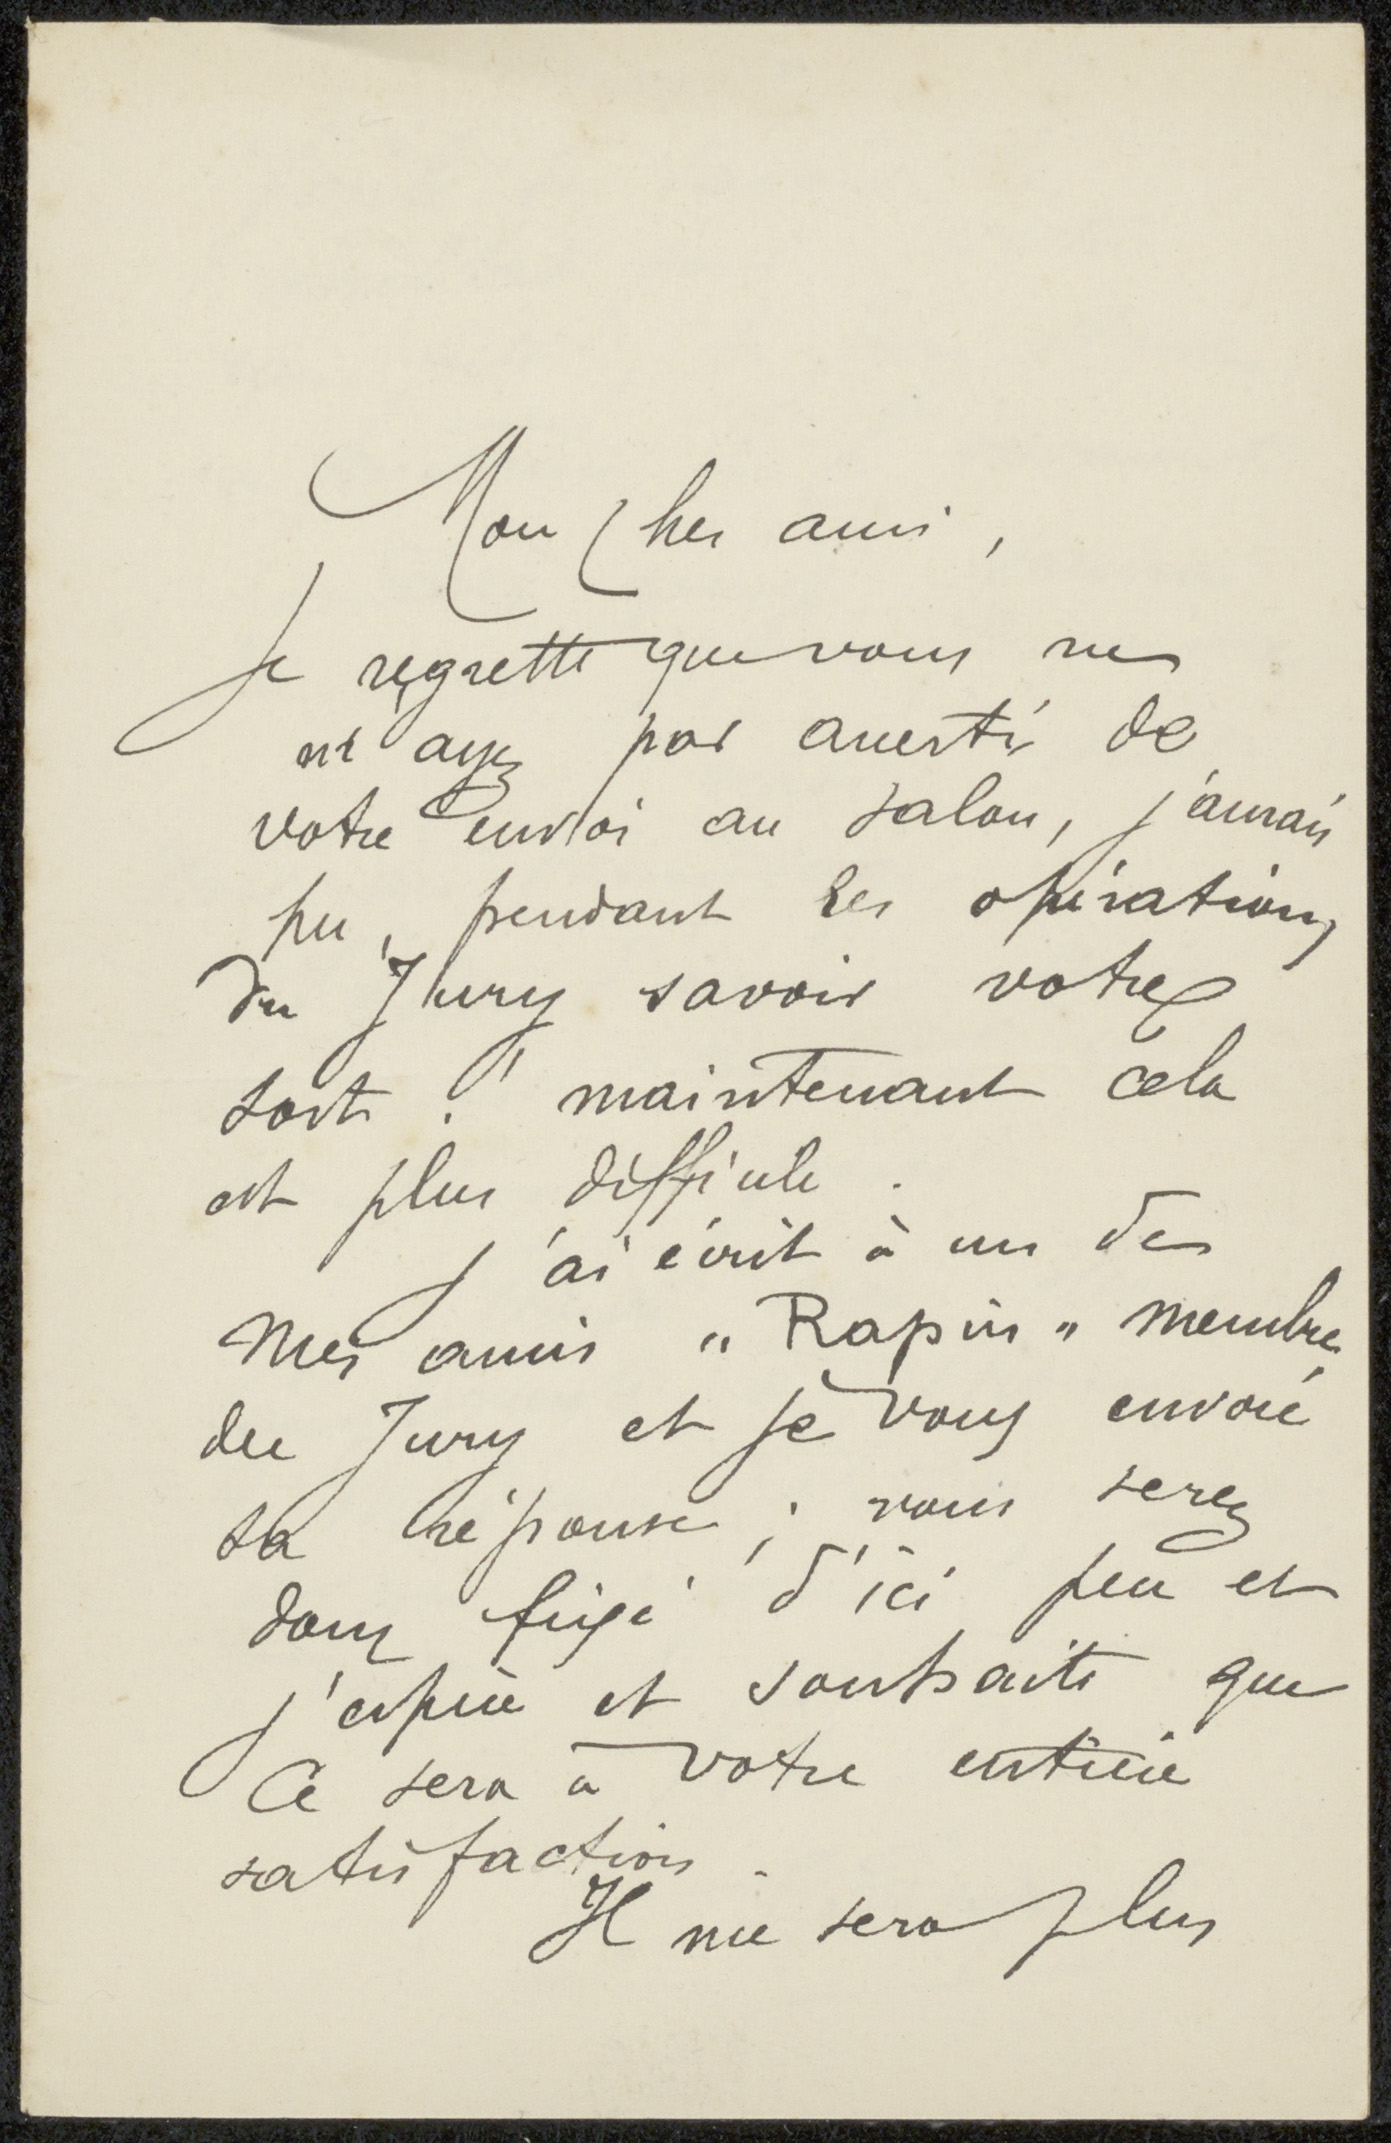 Mon Cher ami,
Je regrette que vous ne
m'ayez pas averti de
votre envoi au salon, j'aurais
pu, pendant les opérations
du Jury savoir votre
sort! maintenant cela
est plus difficile.
j'ai écrit à un de
Mes amis "Rapin" membre
du Jury et je vous envoie
sa réponse; vous serez
donc fixé d'ici peu et
j'espère et souhaite que
Ce sera à votre entière
satisfaction.
Il me sera plus